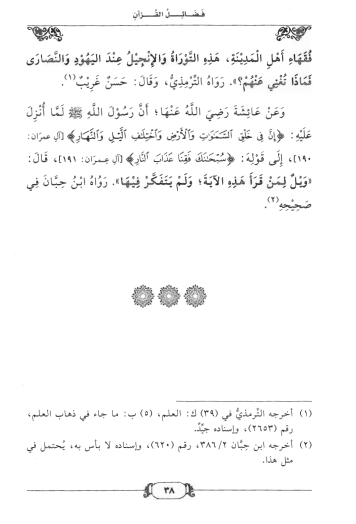 فَضَائِلُ القُرْآنِ
فُقَهَاءِ أَهْلِ الْمَدِينَةِ، هَذِهِ التَّوْرَاةُ وَالإِنْجِيْلُ عِنْدَ اليَهُودِ وَالنَّصَارَى
فَمَاذَا تُغْنِي عَنْهُمْ؟». رَوَاهُ التِّرْمِذِيُّ، وَقَالَ: حَسَنٌ غَرِيْبٌ(١).
وَعَنْ عَائِشَةَ رَضِيَ اللَّهُ عَنْهَا؛ أَنَّ رَسُوْلَ اللَّهِ ﷺ لَمَّا أُنْزِلَ
عَلَيْهِ: ﴿إِنَّ فِي خَلْقِ السَّمَٰوَٰتِ وَالْأَرْضِ وَاخْتِلَٰفِ الَّيْلِ وَالنَّهَارِ﴾ [آل عمران:
١٩٠]، إِلَى قَوْلِهِ: ﴿سُبْحَٰنَكَ فَقِنَا عَذَابَ النَّارِ﴾ [آل عمران: ١٩١]، قَالَ:
«وَيْلٌ لِمَنْ قَرَأَ هَذِهِ الآيَةَ؛ وَلَمْ يَتَفَكَّرْ فِيْهَا». رَوَاهُ ابْنُ حِبَّانَ فِي
صَحِيْحِهِ(٢).
(١) أخرجه التِّرمذيُّ في (٣٩) ك: العلم، (٥) ب: ما جاء في ذهاب العلم،
رقم (٢٦٥٣)، وإسناده جيِّد.
(٢) أخرجه ابن حبَّان ٣٨٦/٢، رقم (٦٢٠)، وإسناده لا بأس به، يُحتمل في
مثل هذا.
٣٨